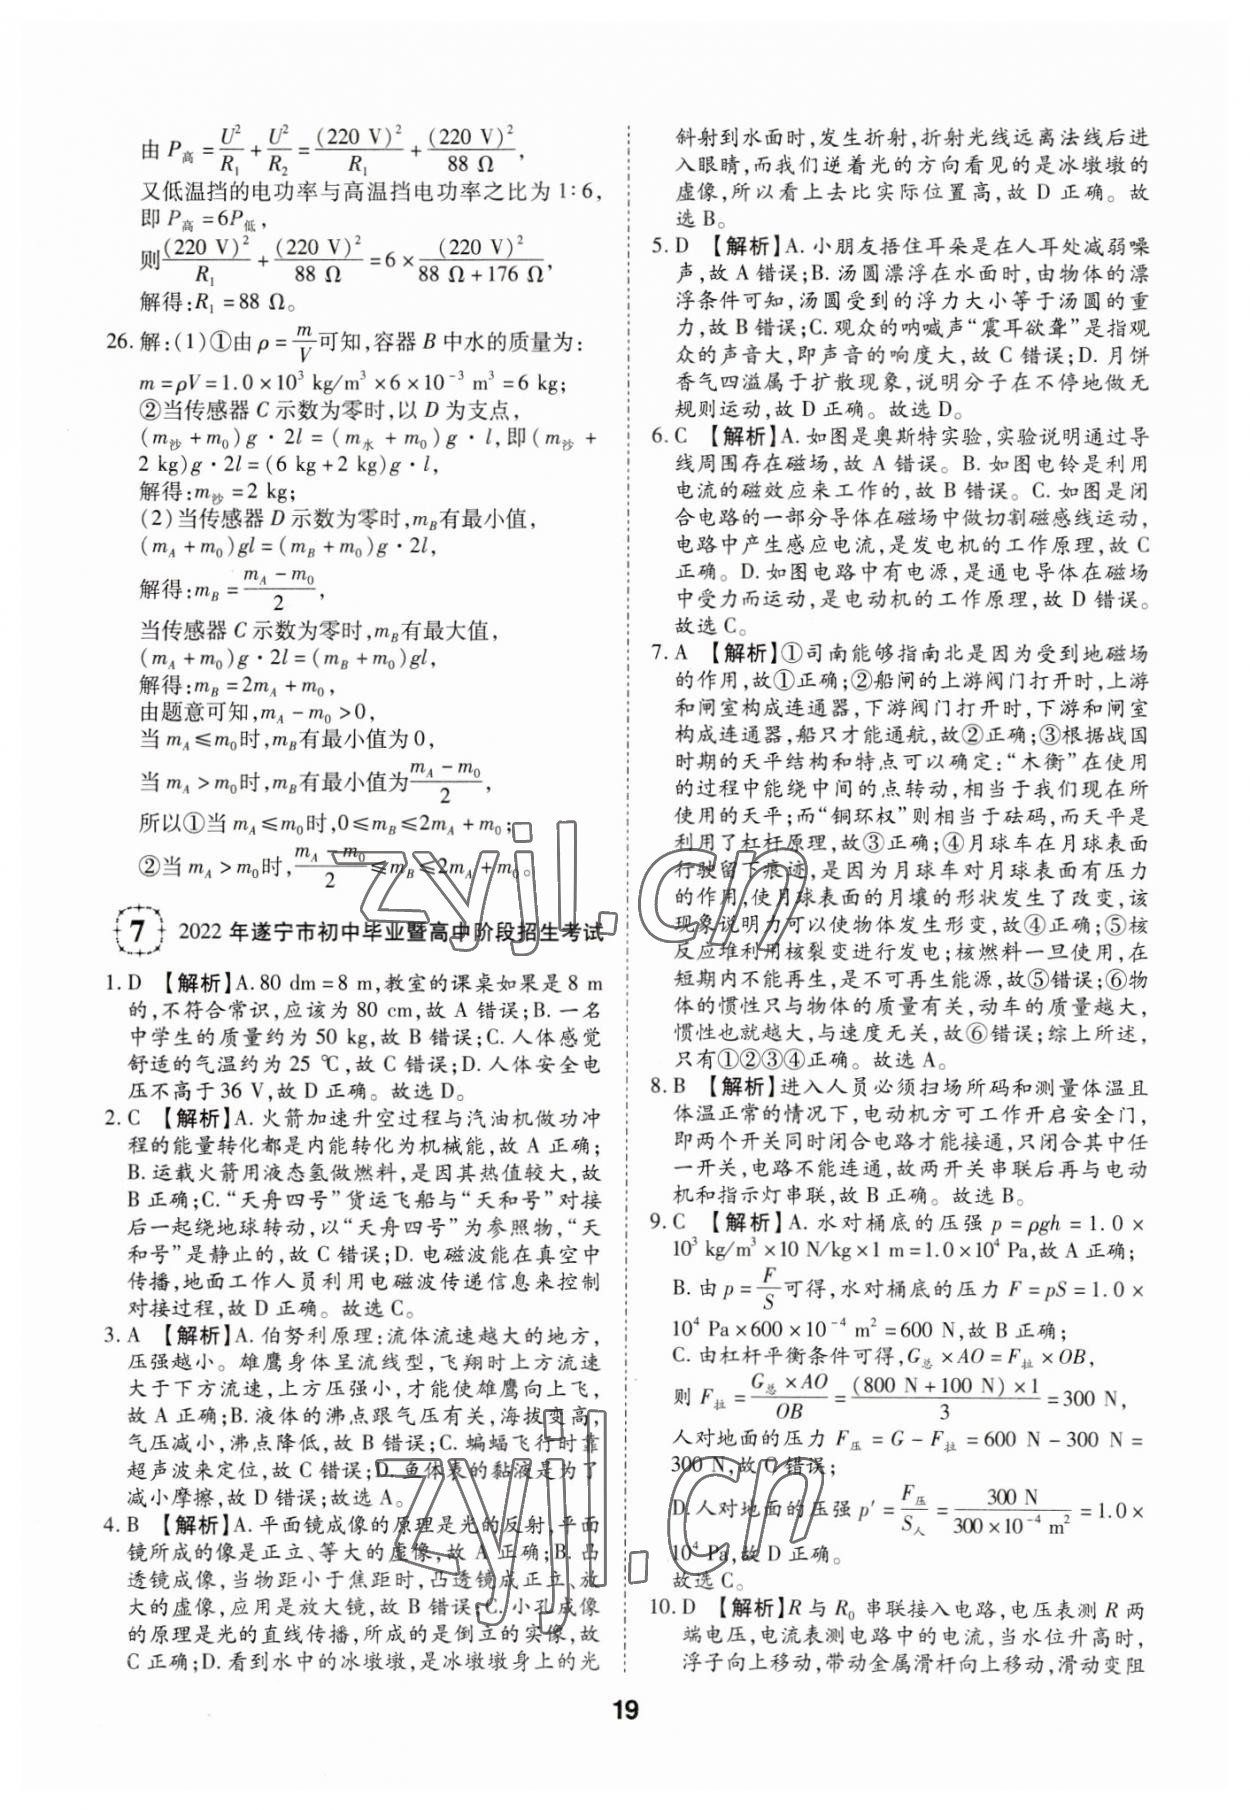 由 P高 = U²/R₁ + U²/R₂ = (220 V)²/R₁ + (220 V)²/88 Ω,
又低温挡的电功率与高温挡电功率之比为 1∶6,
即 P高 = 6P低,
则 (220 V)²/R₁ + (220 V)²/88 Ω = 6 × (220 V)²/(88 Ω + 176 Ω),
解得:R₁ = 88 Ω。
26. 解:(1)①由 ρ = m/V 可知,容器 B 中水的质量为:
m = ρV = 1.0 × 10³ kg/m³ × 6 × 10⁻³ m³ = 6 kg;
②当传感器 C 示数为零时,以 D 为支点,
(m沙 + m₀)g·2l = (m水 + m₀)g·l,即(m沙 +
2 kg)g·2l = (6 kg + 2 kg)g·l,
解得:m沙 = 2 kg;
(2)当传感器 D 示数为零时,m_B 有最小值,
(m_A + m₀)gl = (m_B + m₀)g·2l,
解得:m_B = (m_A − m₀)/2,
当传感器 C 示数为零时,m_B 有最大值,
(m_A + m₀)g·2l = (m_B + m₀)gl,
解得:m_B = 2m_A + m₀,
由题意可知,m_A − m₀ > 0,
当 m_A ≤ m₀ 时,m_B 有最小值为 0,
当 m_A > m₀ 时,m_B 有最小值为 (m_A − m₀)/2,
所以①当 m_A ≤ m₀ 时,0 ≤ m_B ≤ 2m_A + m₀;
②当 m_A > m₀ 时,(m_A − m₀)/2 ≤ m_B ≤ 2m_A + m₀。
7 2022 年遂宁市初中毕业暨高中阶段招生考试
1. D 【解析】A. 80 dm = 8 m,教室的课桌如果是 8 m
的,不符合常识,应该为 80 cm,故 A 错误;B. 一名
中学生的质量约为 50 kg,故 B 错误;C. 人体感觉
舒适的气温约为 25 ℃,故 C 错误;D. 人体安全电
压不高于 36 V,故 D 正确。故选 D。
2. C 【解析】A. 火箭加速升空过程与汽油机做功冲
程的能量转化都是内能转化为机械能,故 A 正确;
B. 运载火箭用液态氢做燃料,是因其热值较大,故
B 正确;C. “天舟四号”货运飞船与“天和号”对接
后一起绕地球转动,以“天舟四号”为参照物,“天
和号”是静止的,故 C 错误;D. 电磁波能在真空中
传播,地面工作人员利用电磁波传递信息来控制
对接过程,故 D 正确。故选 C。
3. A 【解析】A. 伯努利原理:流体流速越大的地方,
压强越小。雄鹰身体呈流线型,飞翔时上方流速
大于下方流速,上方压强小,才能使雄鹰向上飞,
故 A 正确;B. 液体的沸点跟气压有关,海拔变高,
气压减小,沸点降低,故 B 错误;C. 蝙蝠飞行时靠
超声波来定位,故 C 错误;D. 鱼体表的黏液是为了
减小摩擦,故 D 错误;故选 A。
4. B 【解析】A. 平面镜成像的原理是光的反射,平面
镜所成的像是正立、等大的虚像,故 A 正确;B. 凸
透镜成像,当物距小于焦距时,凸透镜成正立、放
大的虚像,应用是放大镜,故 B 错误;C. 小孔成像
的原理是光的直线传播,所成的是倒立的实像,故
C 正确;D. 看到水中的冰墩墩,是冰墩墩身上的光
斜射到水面时,发生折射,折射光线远离法线后进
入眼睛,而我们逆着光的方向看见的是冰墩墩的
虚像,所以看上去比实际位置高,故 D 正确。故
选 B。
5. D 【解析】A. 小朋友捂住耳朵是在人耳处减弱噪
声,故 A 错误;B. 汤圆漂浮在水面时,由物体的漂
浮条件可知,汤圆受到的浮力大小等于汤圆的重
力,故 B 错误;C. 观众的呐喊声“震耳欲聋”是指观
众的声音大,即声音的响度大,故 C 错误;D. 月饼
香气四溢属于扩散现象,说明分子在不停地做无
规则运动,故 D 正确。故选 D。
6. C 【解析】A. 如图是奥斯特实验,实验说明通过导
线周围存在磁场,故 A 错误。B. 如图电铃是利用
电流的磁效应来工作的,故 B 错误。C. 如图是闭
合电路的一部分导体在磁场中做切割磁感线运动,
电路中产生感应电流,是发电机的工作原理,故 C
正确。D. 如图电路中有电源,是通电导体在磁场
中受力而运动,是电动机的工作原理,故 D 错误。
故选 C。
7. A 【解析】①司南能够指南北是因为受到地磁场
的作用,故①正确;②船闸的上游阀门打开时,上游
和闸室构成连通器,下游阀门打开时,下游和闸室
构成连通器,船只才能通航,故②正确;③根据战国
时期的天平结构和特点可以确定:“木衡”在使用
的过程中能绕中间的点转动,相当于我们现在所
使用的天平;而“铜环权”则相当于砝码,而天平是
利用了杠杆原理,故③正确;④月球车在月球表面
行驶留下痕迹,是因为月球车对月球表面有压力
的作用,使月球表面的月壤的形状发生了改变,该
现象说明力可以使物体发生形变,故④正确;⑤核
反应堆利用核裂变进行发电;核燃料一旦使用,在
短期内不能再生,是不可再生能源,故⑤错误;⑥物
体的惯性只与物体的质量有关,动车的质量越大,
惯性也就越大,与速度无关,故⑥错误;综上所述,
只有①②③④正确。故选 A。
8. B 【解析】进入人员必须扫场所码和测量体温且
体温正常的情况下,电动机方可工作开启安全门,
即两个开关同时闭合电路才能接通,只闭合其中任
一开关,电路不能连通,故两开关串联后再与电动
机和指示灯串联,故 B 正确。故选 B。
9. C 【解析】A. 水对桶底的压强 p = ρgh = 1.0 ×
10³ kg/m³ × 10 N/kg × 1 m = 1.0 × 10⁴ Pa,故 A 正确;
B. 由 p = F/S 可得,水对桶底的压力 F = pS = 1.0 ×
10⁴ Pa × 600 × 10⁻⁴ m² = 600 N,故 B 正确;
C. 由杠杆平衡条件可得,G总 × AO = F拉 × OB,
则 F拉 = (G总 × AO)/OB = ((800 N + 100 N) × 1)/3 = 300 N,
人对地面的压力 F压 = G − F拉 = 600 N − 300 N =
300 N,故 C 错误;
D. 人对地面的压强 p′ = F压/S人 = 300 N/(300 × 10⁻⁴ m²) = 1.0 ×
10⁴ Pa,故 D 正确。
故选 C。
10. D 【解析】R 与 R₀ 串联接入电路,电压表测 R 两
端电压,电流表测电路中的电流,当水位升高时,
浮子向上移动,带动金属滑杆向上移动,滑动变阻
19
zyjl.cn
zyjl.cn